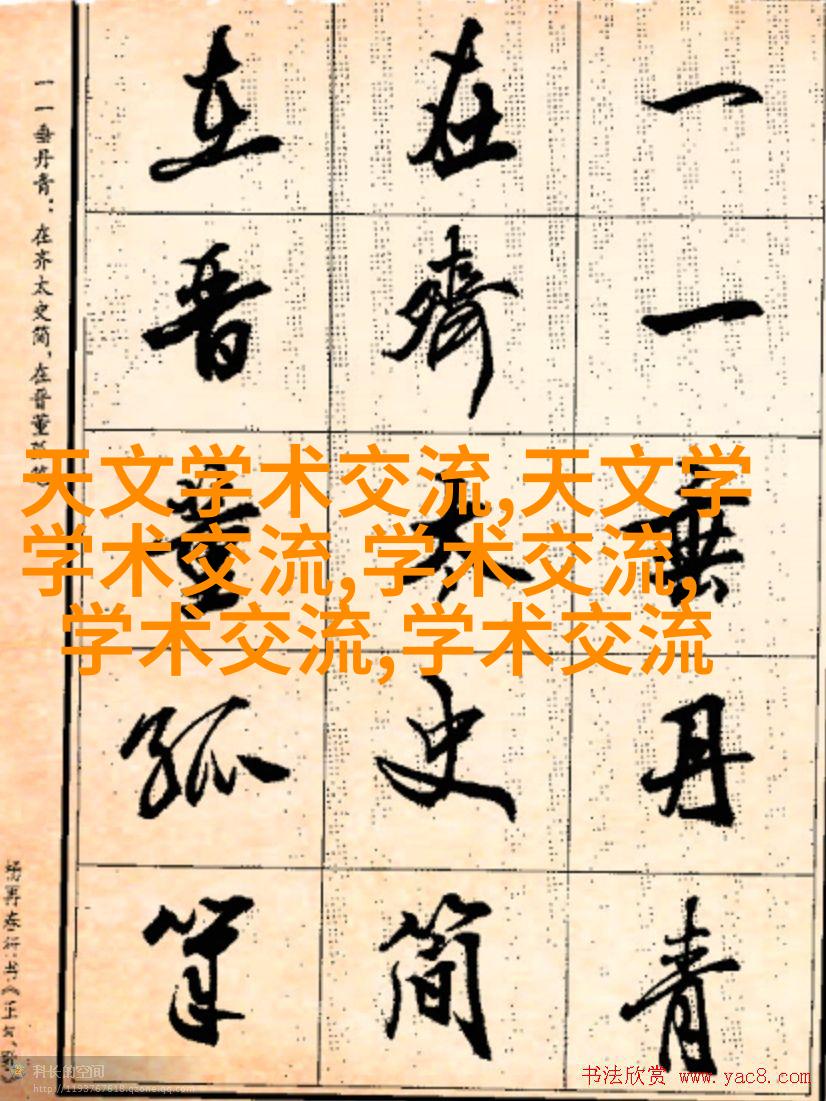 一一垂丹青
在齐太史简
在晋董孤笔
一一垂丹青：在齐太史简，在晋董孤笔
天文学术交流,天文学
学术交流,学术交流,
学术交流,学术交流
科长的空间
http://1193767618.qzone.qq.com
书法欣赏 www.yac8.com